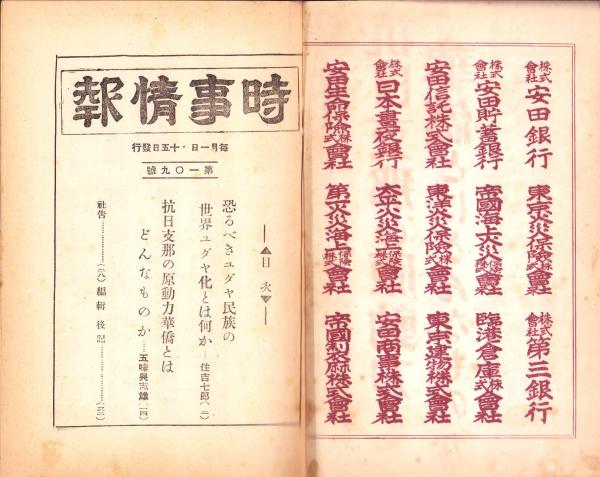 株式會社安田銀行
株式會社安田貯蓄銀行
安田信託株式會社
株式會社日本晝夜銀行
安田生命保險株式會社
東京火災保險株式會社
帝國海上火災保險株式會社
東洋火災保險株式會社
太平火災海上保險株式會社
第一火災海上保險株式會社
株式會社第三銀行
臨港倉庫株式會社
東京建物株式會社
安田商事株式會社
帝國製麻株式會社
時事情報
每月一日・十五日發行
第一〇九號
目次
恐るべきユダヤ民族の
世界ユダヤ化とは何か……住吉七郎(二)
抗日支那の原動力華僑とは
どんなものか……五味 志雄(一四)
社告………… 編輯後記…………